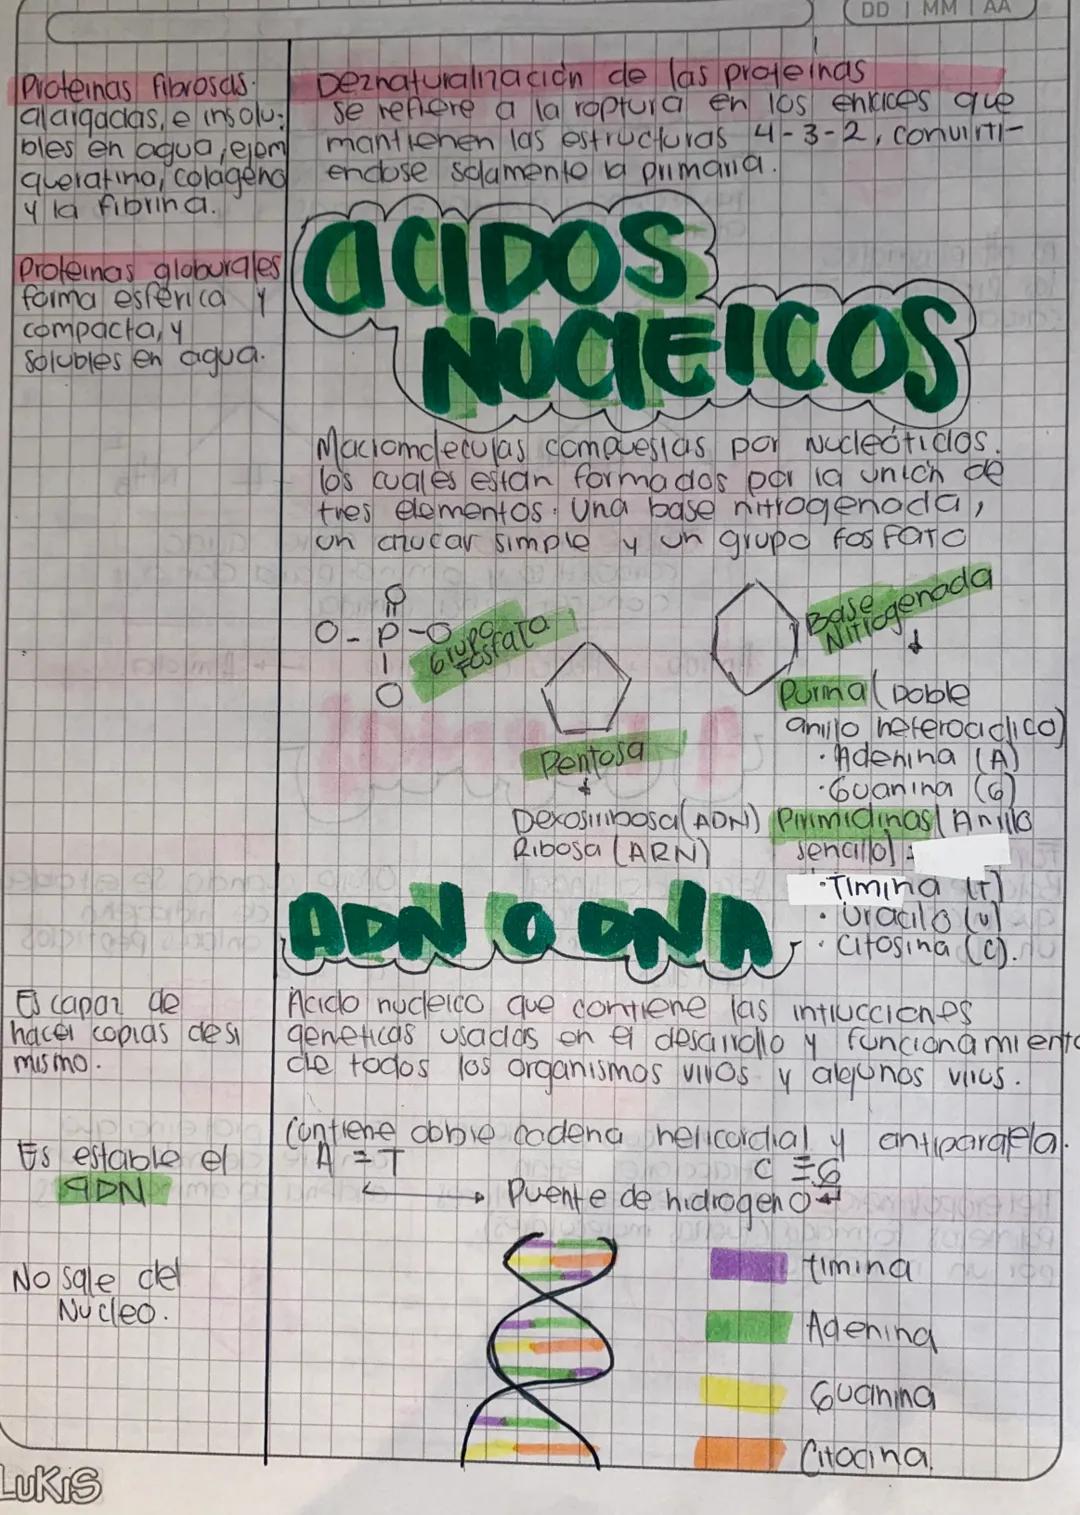 DD | MM | AA
Proteinas fibrosas.
alargadas, e insolu-
bles en agua, ejem
queratina, colageno
y la fibrina.
Proteinas globurales
forma esférica y
compacta, y
solubles en agua.
Deznaturalización de las proteinas
se refiere a la roptura en los enlaces que
mantienen las estructuras 4-3-2, convirti-
endose solamento la primaria.
ACIDOS
NUCLEICOS
Macromoleculas compuestas por Nucleótidos.
los cuales estan formados por la unión de
tres elementos. Una base nitrogenada,
un azucar simple y un grupo fosfato
O
O - P - O
O
Grupo
Fosfato
Pentosa
Dexosirribosa (ADN)
Ribosa (ARN)
Base
Nitrogenada
Purina (Doble
anillo heterociclico)
· Adenina (A)
· Guanina (G)
Pirimidinas (Anillo
sencillo) :
· Timina (T)
· Uracilo (u)
· Citosina (C).
ADN O DNA
Es capaz de
hacer copias de si
mismo.
Es estable el
ADN
No sale del
Nucleo.
Acido nucleico que contiene las intrucciones
geneticas usadas en el desarrollo y funcionamiento
de todos los organismos vivos y algunos virus.
Contiene doble cadena helicordial y antiparalela.
A = T C ≡ G
Puente de hidrogeno
timina
Adenina
Guanina
Citocina.
LUKIS